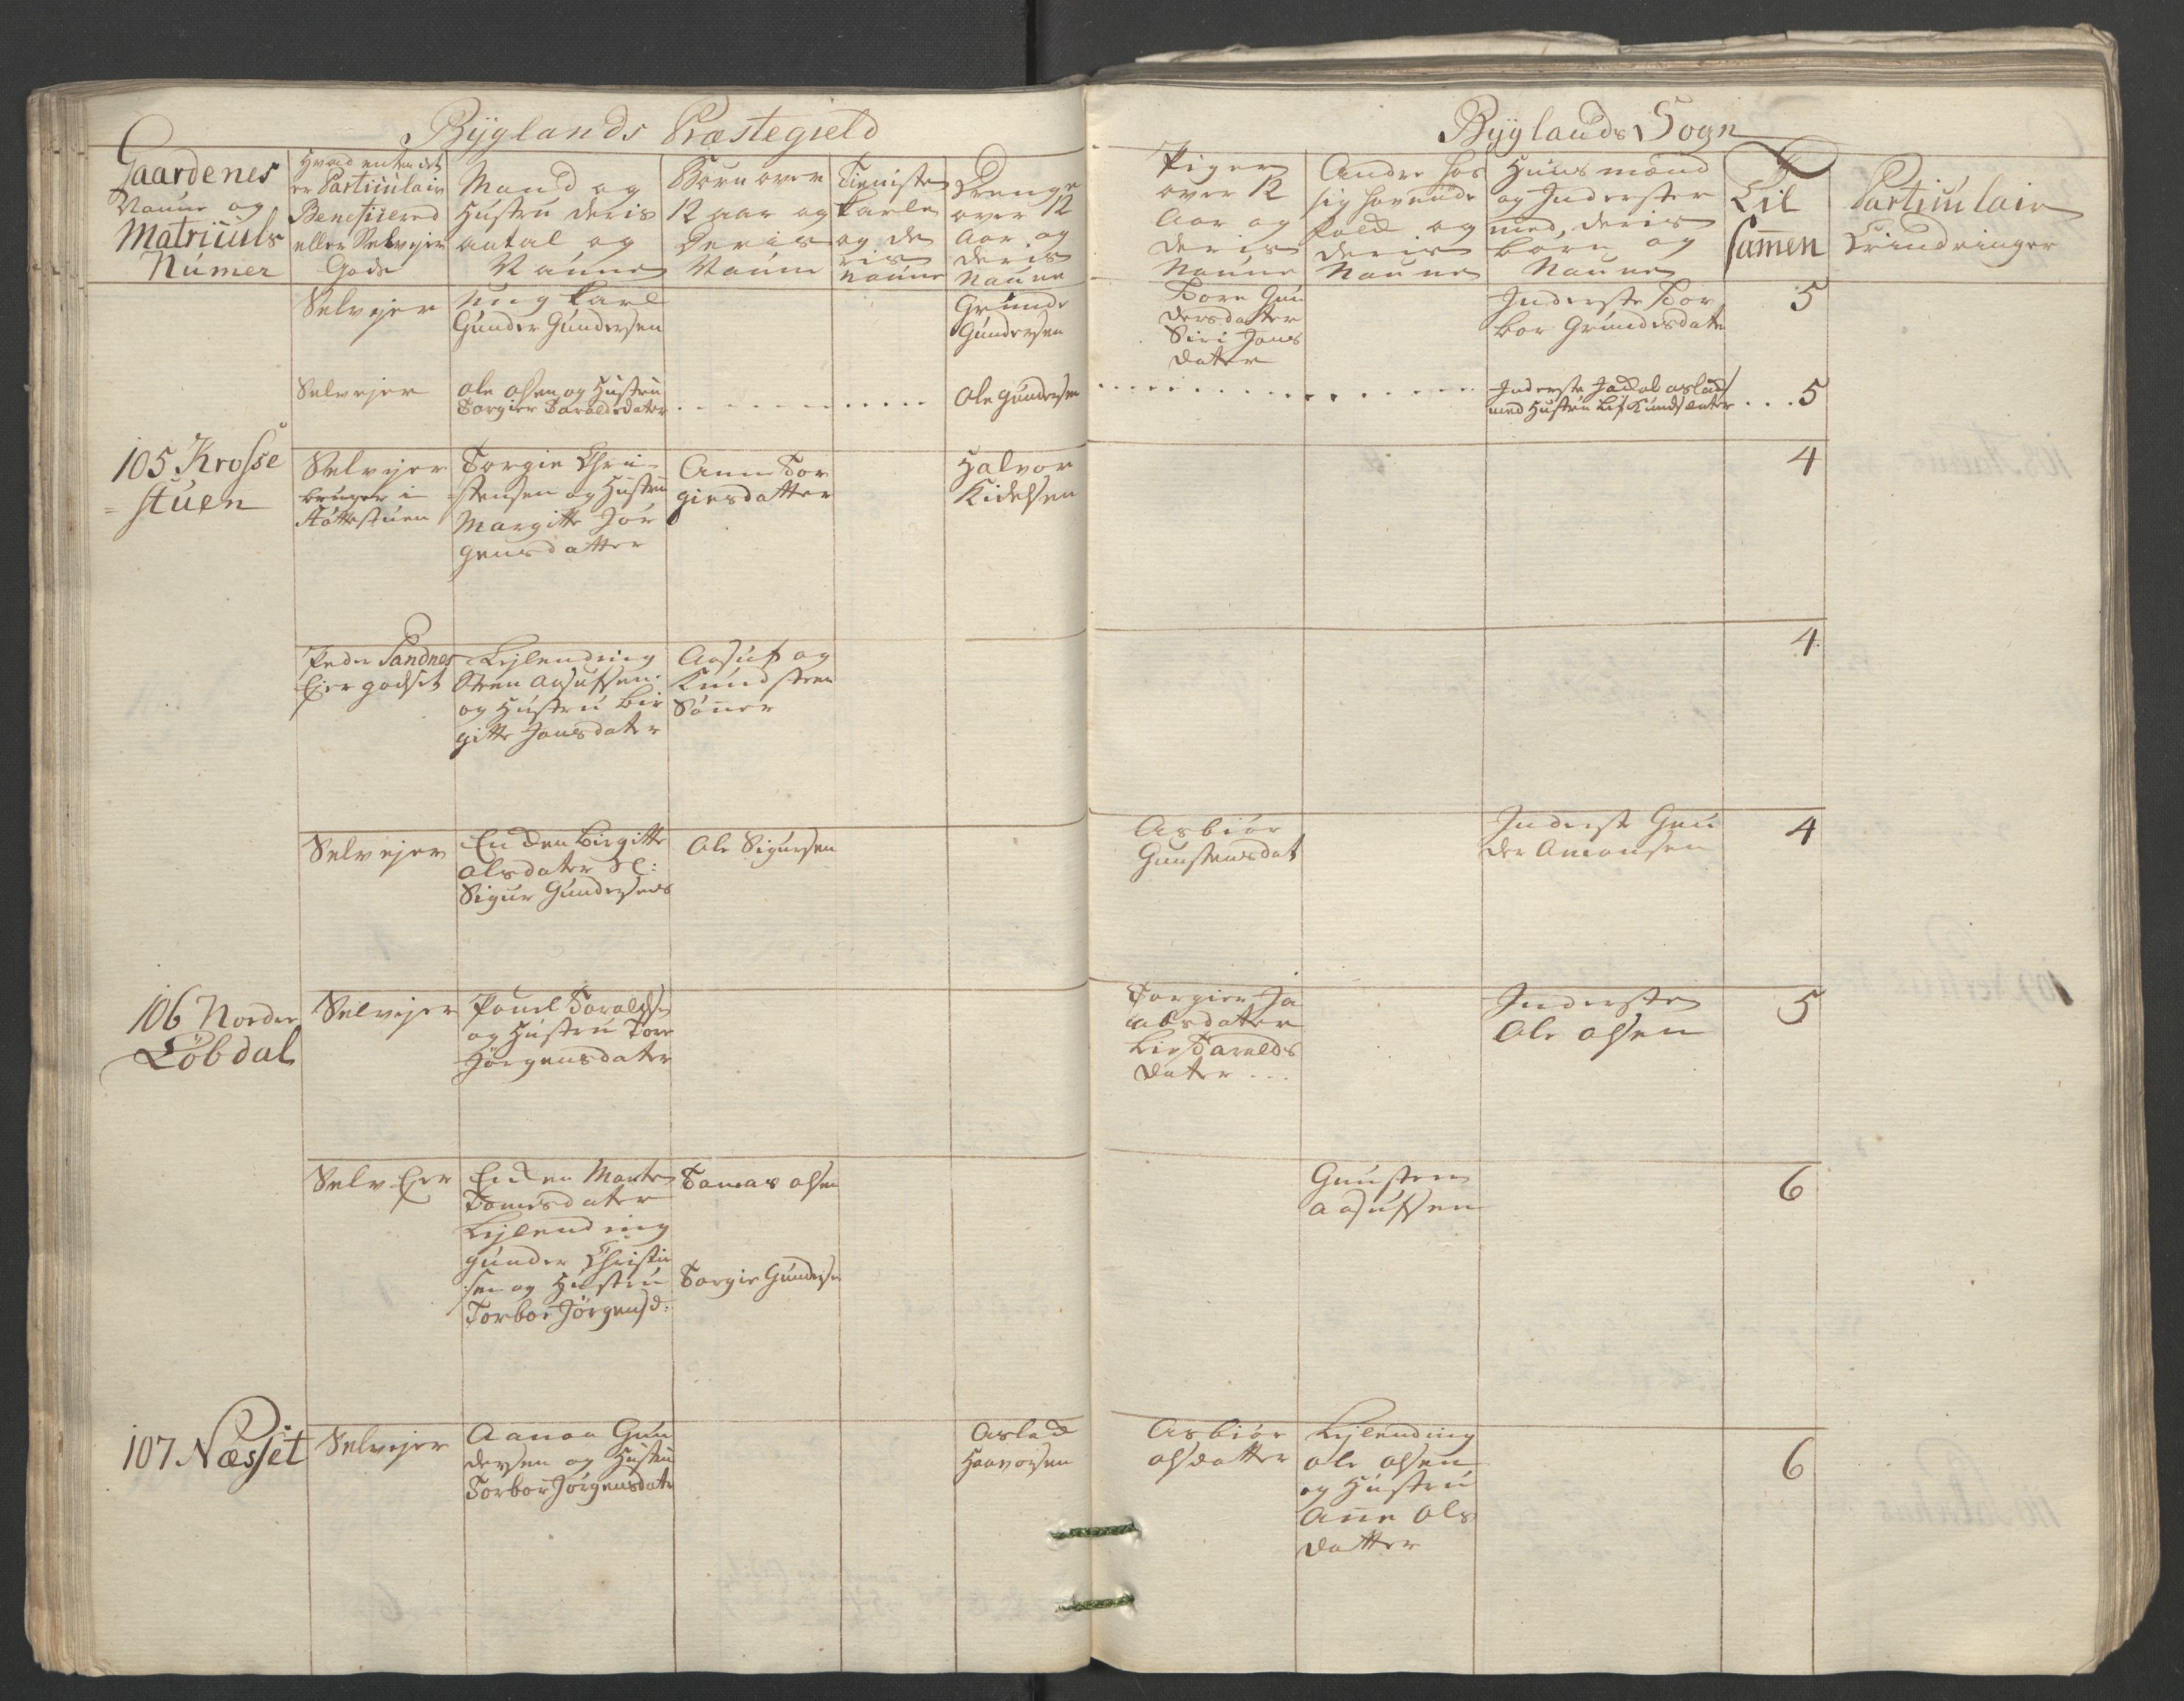 Byglands Præstegield
Byglands Sogn
Gaardenes
Naune og
Matriculs
Numer
Hvad enten det
er Particulair
Beneficered
eller Selvejer
Gods
Mand og
Hustru deris
antal og
Naune
Børn over
12 aar og
Deris
Naune
Tieniste
Karle
og de
ris
Naune
Drenge
over 12
Aar og
deris
Naune
Piger
over 12
Aar og
deris
Naune
Andre hos
sig havende
folk og
deris
Naune
Huusmænd
og Inderster
med deris
børn og
Naune
Til
samen
Particulair
Erindringer
Selvejer
Ung Karl
Gunder Gundersen
Grunde
Gundersen
Tore Gun
dersdatter
Siri Jons
dater
Inderste Tor
bor Grundesdater
5
Selvejer
Ole Olsen og Hustru
Torgier Taraldsdater
Ole Gundersen
med Hustru
5
105 Krosse
stuen
Selvejer
bruger i
Torgie Chri
stensen og Hustru
Margitte Jør
gensdatter
Anne Tor
giesdatter
Halvor
Kidelsen
4
Peder Sandnes
Ejer godset
Lejlending
Sten Aasufsen
og Hustru Bir
gitte Jonsdater
Aasuf og
Knud Steen
Sønner
4
Selvejer
Enken Birgitte
Olsdater Sl:
Sigur Gundersens
Ole Sigursen
Asbiør
Gunstensdat
Inderste Gun
der Amonsen
4
106 Norder
Løbdal
Selvejer
Povel Taraldsen
og Hustru Tore
Jørgensdater
Torgier Ja
cobsdater
Liv Taralds
dater
Inderste
Ole Olsen
5
Selv Ejer
Enken Marte
Tomesdater
Lejlending
Gunder Christen
sen og Hustru
Torbor Jørgensd:
Tomas Olsen
Torgie Gundersen
Gunsten
Aasufsen
6
107 Næsset
Selvejer
Aanon Gun
dersen og Hustru
Torbor Jørgensdater
Aslad
Haavorsen
Asbiør
Olsdatter
Lejlending
Ole Olsen
og Hustru
Anne Ols
datter
6